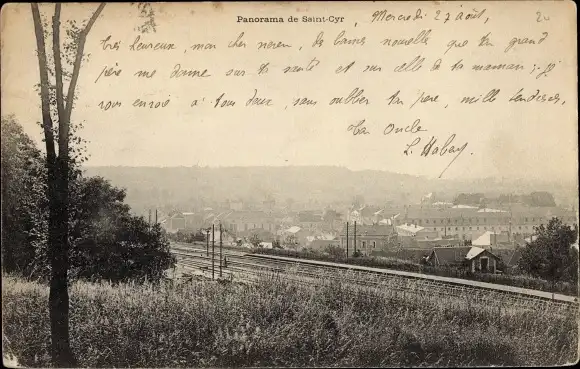 Panorama de Saint-Cyr
Mercredi 27 août,
20
Très heureux, mon cher neveu, des bonnes nouvelles que ton grand
père me donne sur ta santé et sur celle de ta maman ; je
vous envoie à tous deux, sans oublier ton père, mille tendresses,
Ton Oncle